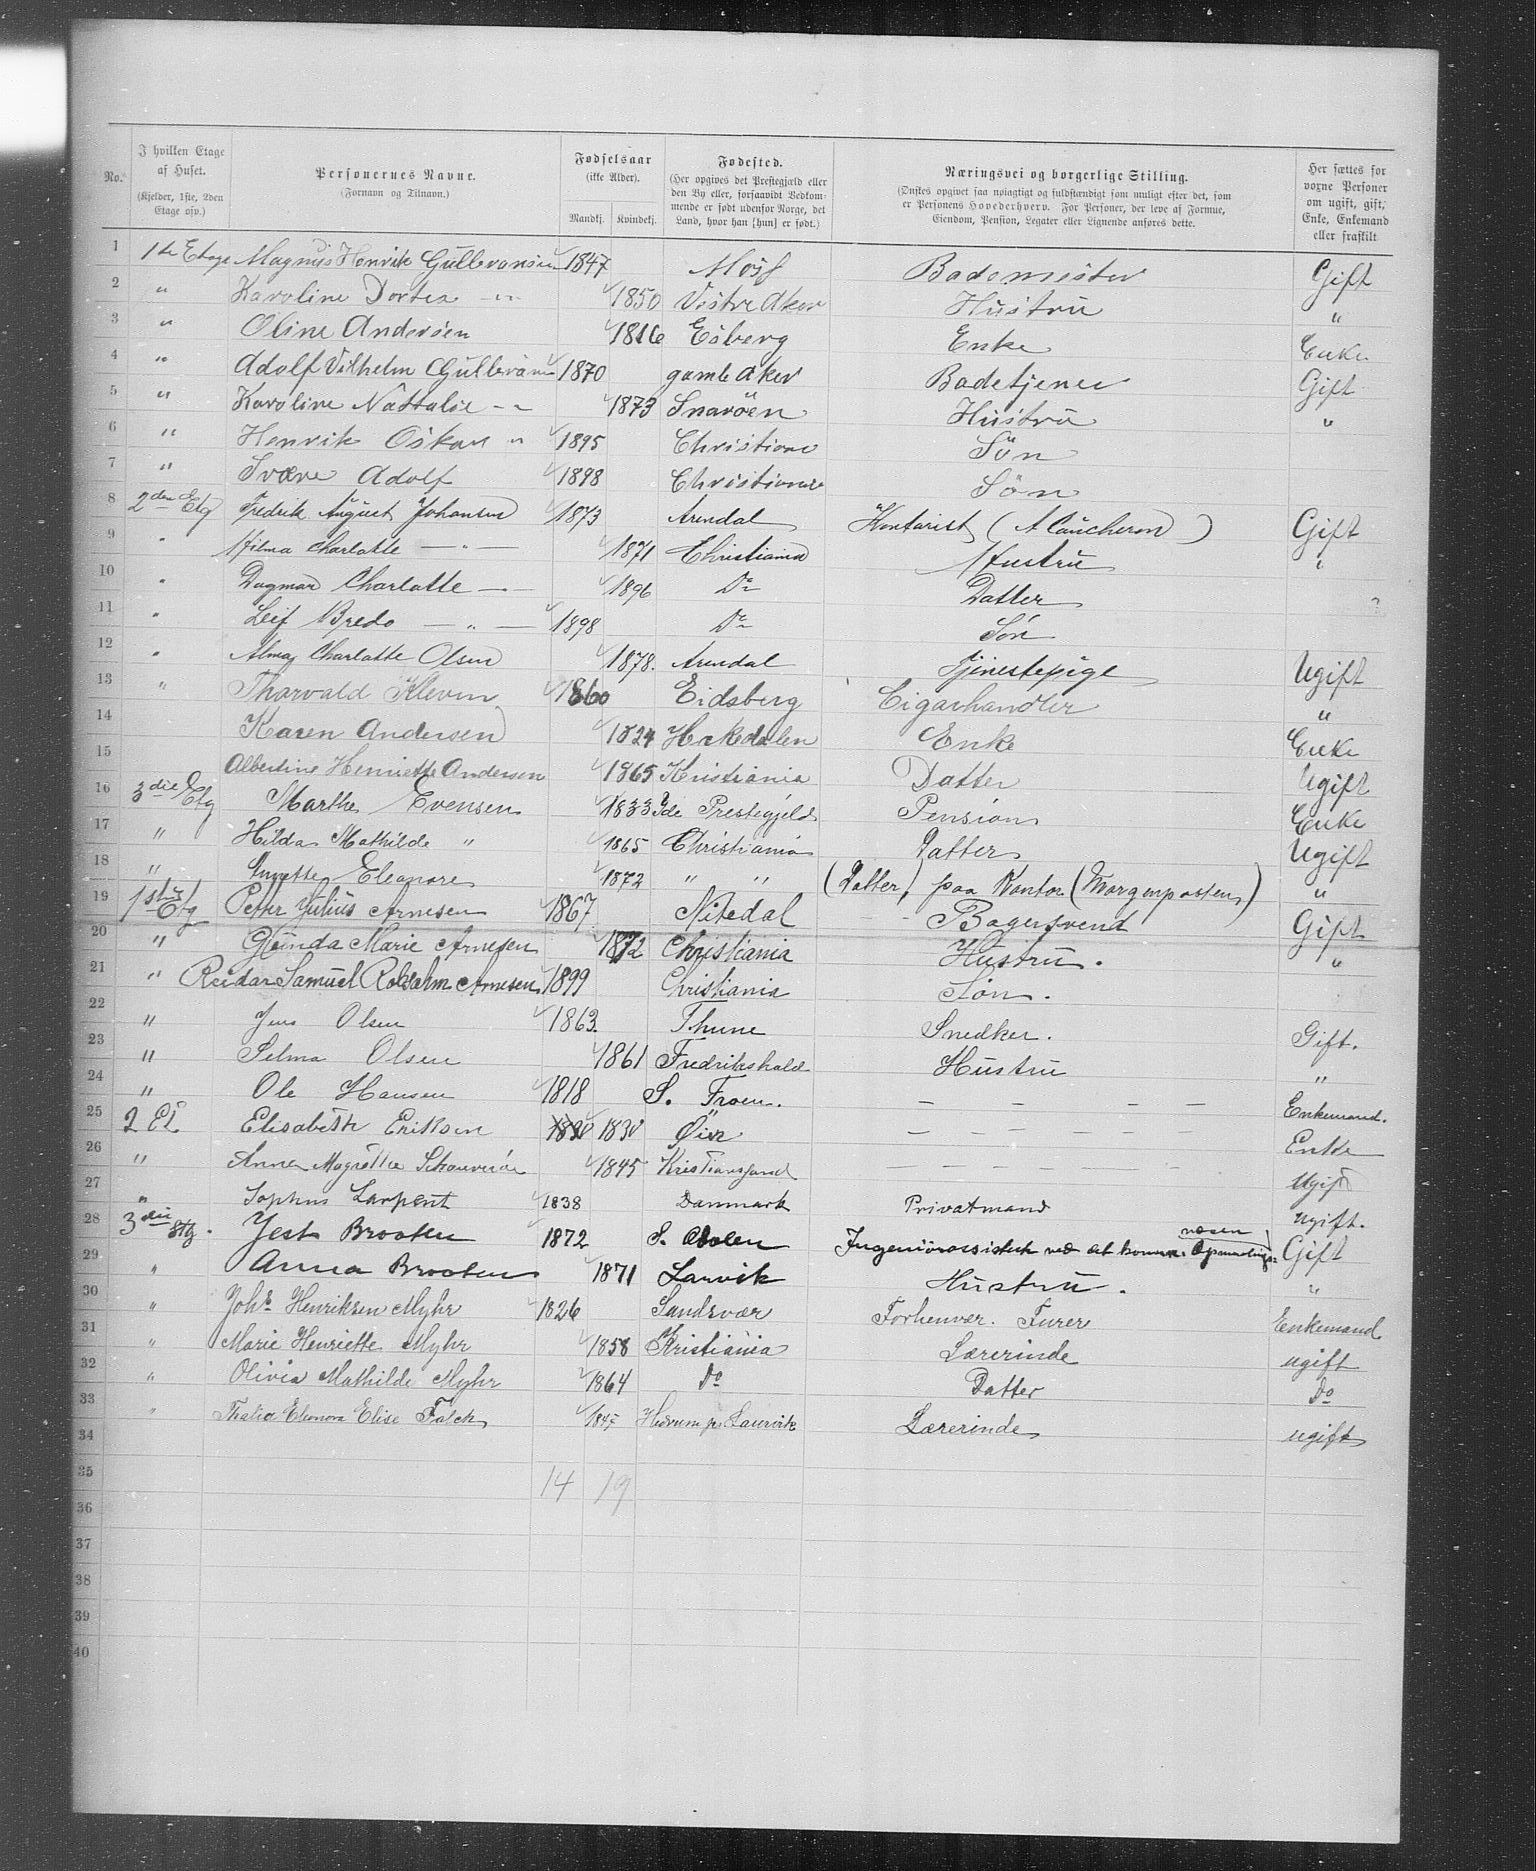 No.
I hvilken Etage af Huset. (Kjelder, 1ste, 2den Etage osv.)
Personernes Navne. (Fornavn og Tilnavn.)
Fødselsaar (ikke Alder). Mandkj. Kvindekj.
Fødested. (Her opgives det Prestegjæld eller den By eller, forsaavidt Vedkommende er født udenfor Norge, det Land, hvor han [hun] er født.)
Næringsvei og borgerlige Stilling. (Ønskes opgivet saa nøiagtigt og fuldstændigt som muligt efter det, som er Personens Hovederhverv. For Personer, der leve af Formue, Eiendom, Pension, Legater eller Lignende anføres dette.
Her sættes for voxne Personer om ugift, gift, Enke, Enkemand eller fraskilt
1 1ste Etage Magnus Henrik Gullbransen 1847 Moss Bademester Gift
2 " Karoline Dortea -"- 1850 Vestre Aker Hustru "
3 " Oline Andersen 1816 Esberg Enke Enke
4 " Adolf Vilhelm Gullbran 1870 gamle Aker Badetjener Gift
5 " Karoline Nattalie -"- 1873 Snarøen Hustru "
6 " Henrik Oskar " 1895 Christiane Søn
7 " Svære Adolf 1898 Christiania Søn
8 2den Etg Fredrik August Johansen 1873 Arendal Kontorist ( ) Gift
9 " Hilma Charlotte -"- 1871 Christiania Hustru "
10 " Dagmar Charlotte - - 1896 Do Datter
11 " Leif Bredo -"- 1898 Do Søn
12 " Alma Charlotte Olsen 1878. Arendal Tjenestepige Ugift
13 " Tharvald Kleven 1860 Eidsberg Cigarhandler "
14 Karen Andersen 1824 Hakedalen Enke Enke
15 Albertine Henriette Andersen 1865 Kristiania Datter Ugift
16 3die Etg Marthe Evensen 1833 Ide Prestegjeld Pension Enke
17 " Hilda Mathilde " 1865 Christiania Datter Ugift
18 " Eleonore 1872 " " (Datter) paa Kontor (Morgenposten) "
19 1ste Etg Petter Julius Arnesen 1867 Nitedal Bagersvend Gift
20 " Gunda Marie Arnesen 1872 Christiania Hustru. "
21 " Reidar Samuel Arnesen 1899 Christiania Søn.
22 " Jens Olsen 1863. Thune Snedker. Gift.
23 " Selma Olsen 1861 Fredrikshald Hustru "
24 " Ole Hansen 1818 S. Froen. - - - - Enkemand.
25 2 Et Elisabeth Eriksen 1830 1830 Øier - - - - - - Enke
26 " Anna Magrethe 1845 Kristiansand - - - - - - Ugift
27 " Sophus Larpent 1838 Danmark Privatmand ugift.
28 3die Etg. Jest Brooten 1872 S. Odalen Ingeniørassistent ved det komm. Opmaalingsvæsen Gift
29 " Anna Brooten 1871 Larvik Hustru. "
30 " Johs Henriksen Myhr 1826 Sandsvær Forhenvær. Furer Enkemand
31 " Marie Henriette Myhr 1858 Kristiania Lærerinde ugift
32 " Olivia Mathilde Myhr 1864 Do Datter Do
33 " Thalia Eleonora Elise Falck 1845 Hedrum pr Laurvik Lærerinde ugift
34
35 14 19
36
37
38
39
40